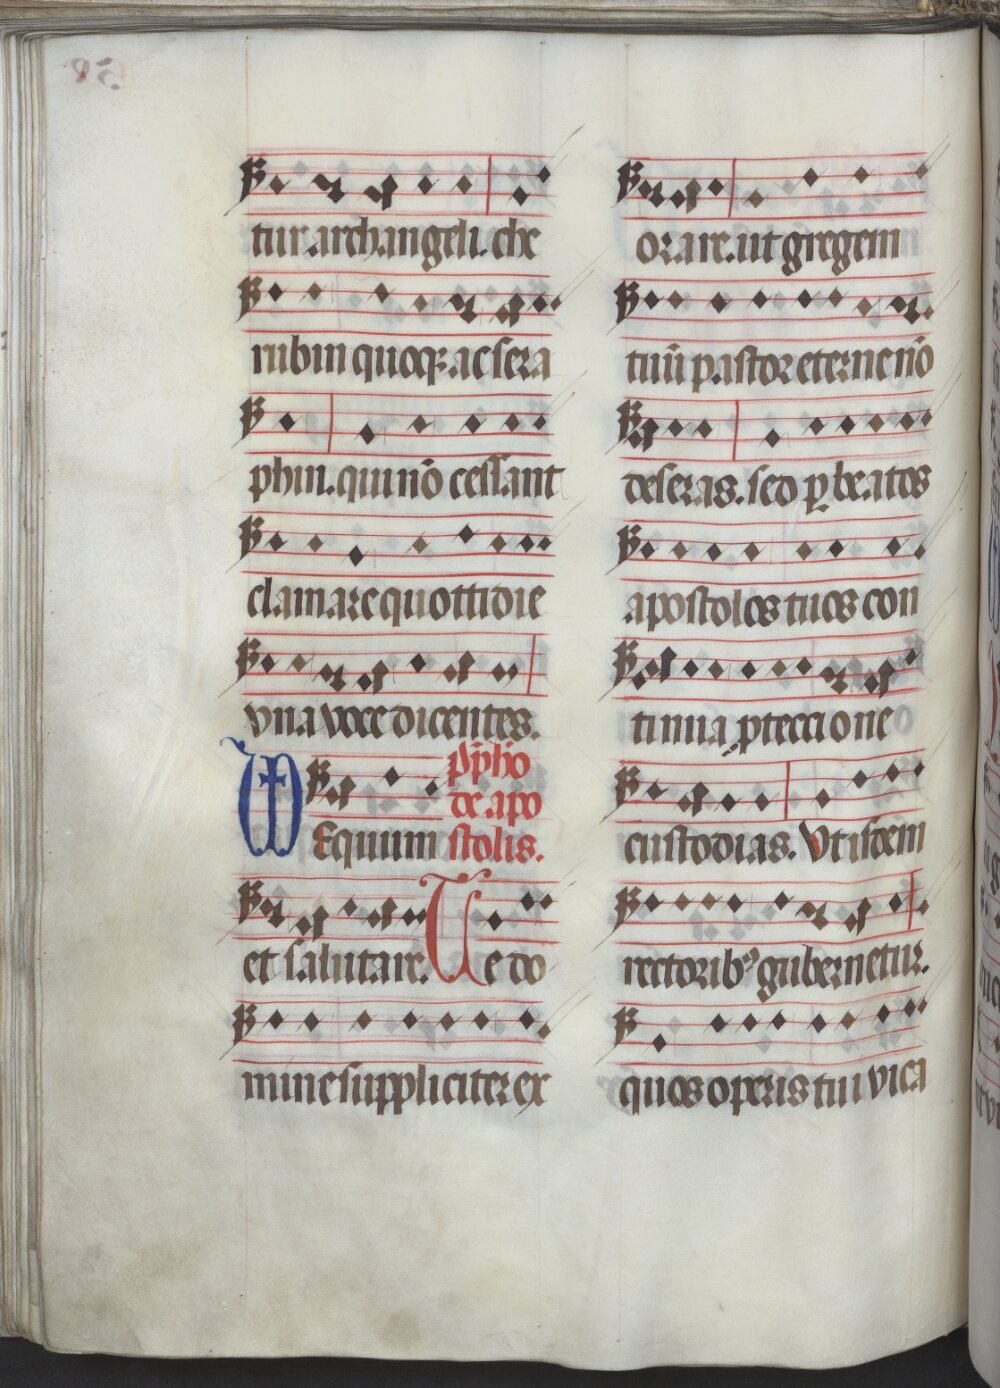 tur archangeli. che
rubin quoqꝫ ac sera
phin. qui nō cessant
clamare quottidie
vna voce dicentes.
p̄p̄hō
de apo
Equum stolis.
et salutare. Te do
mine suppliciter ex
orare. ut gregem
tuū pastor eterne nō
deseras. sed ꝑ beatos
apostolos tuos con
tinua ꝓteccione
custodias. Vt iisdem
rectoribꝰ gubernetur.
quos operis tui vica